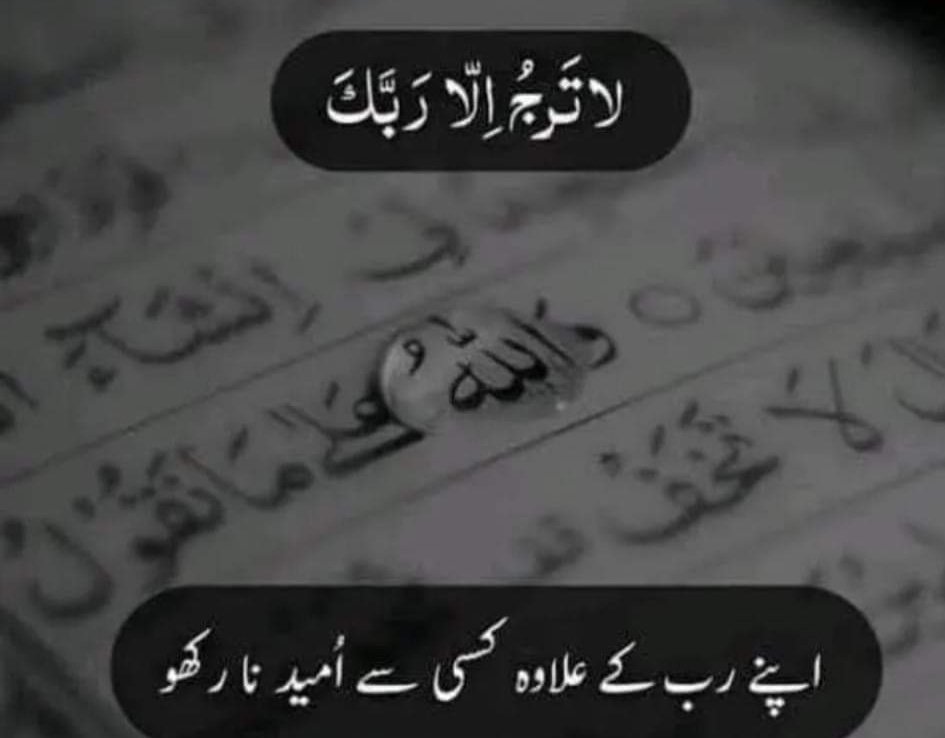 لَا تَرجُ اِلّا رَبَّكَ
اِنْشَآءَ
وَاللّٰهُ عَلٰی مَا نَقُوْلُ
لَ لَا تَخَفْ
اپنے رب کے علاوہ کسی سے اُمید نا رکھو